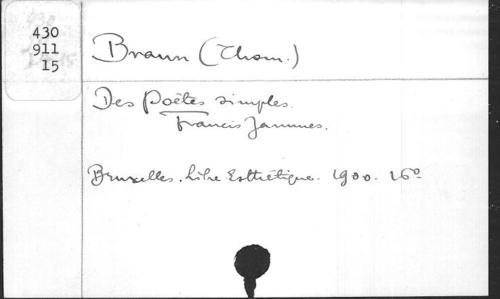 430
911
15
Braun (Thom.)
Des Poëtes simples.
Francis Jammes.
Bruxelles. Libre Esthétique. 1900. 16o